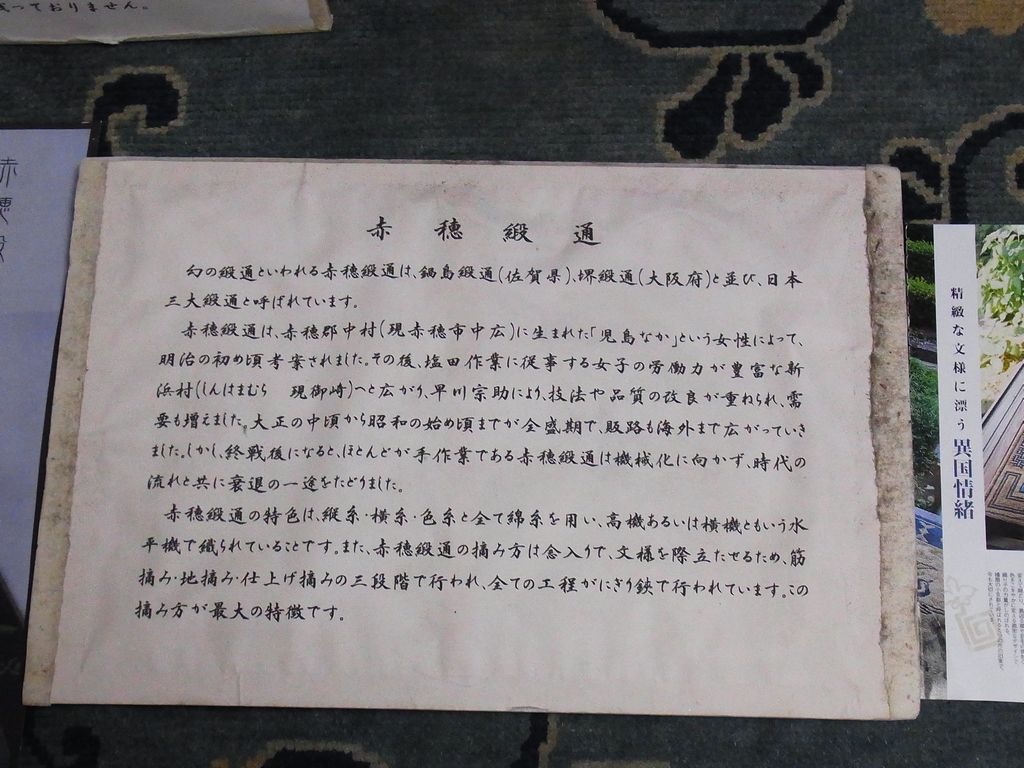 っておりません。
赤穂緞通
幻の緞通といわれる赤穂緞通は、鍋島緞通(佐賀県)、堺緞通(大阪府)と並び、日本
三大緞通と呼ばれています。
赤穂緞通は、赤穂郡中村(現赤穂市中広)に生まれた「児島なか」という女性によって、
明治の初め頃考案されました。その後、塩田作業に従事する女子の労働力が豊富な新
浜村(しんはまむら 現御崎)へと広がり、早川宗助により、技法や品質の改良が重ねられ、需
要も増えました。大正の中頃から昭和の始め頃までが全盛期で、販路も海外まで広がっていき
ました。しかし、終戦後になると、ほとんどが手作業である赤穂緞通は機械化に向かず、時代の
流れと共に衰退の一途をたどりました。
赤穂緞通の特色は、縦糸・横糸・色糸と全て綿糸を用い、高機あるいは横機ともいう水
平機で織られていることです。また、赤穂緞通の摘み方は念入りで、文様を際立たせるため、筋
摘み・地摘み・仕上げ摘みの三段階で行われ、全ての工程がにぎり鋏で行われています。この
摘み方が最大の特徴です。
赤穂緞
精緻な文様に漂う異国情緒